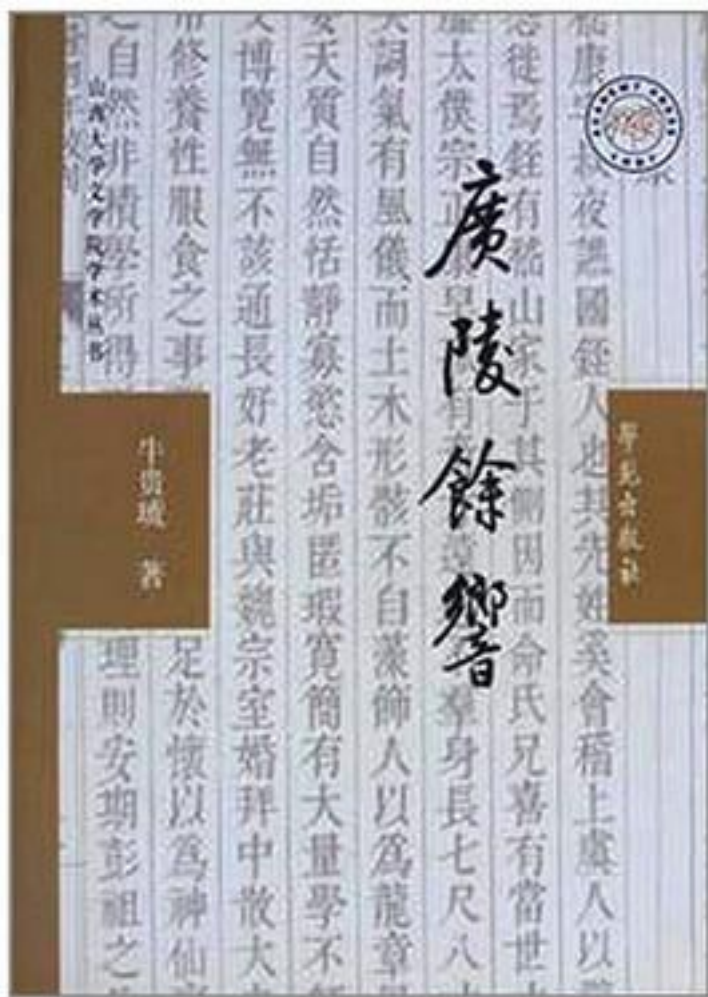 廣陵餘響
牛贵琥 著
山西大学文学院学术丛书
學苑出版社
ACADEMY PRESS
嵇康字叔夜譙國銍人也其先姓奚會稽上虞人以
怨徙焉銍有嵇山家于其側因而命氏兄喜有當世
太僕宗正早有羣身長七尺八
詞氣有風儀而土木形骸不自藻飾人以為龍章
天質自然恬靜寡慾含垢匿瑕寬簡有大量學不
博覽無不該通長好老莊與魏宗室婚拜中散大
常修養性服食之事足於懷以為神仙
之自然非積學所得理則安期彭祖之